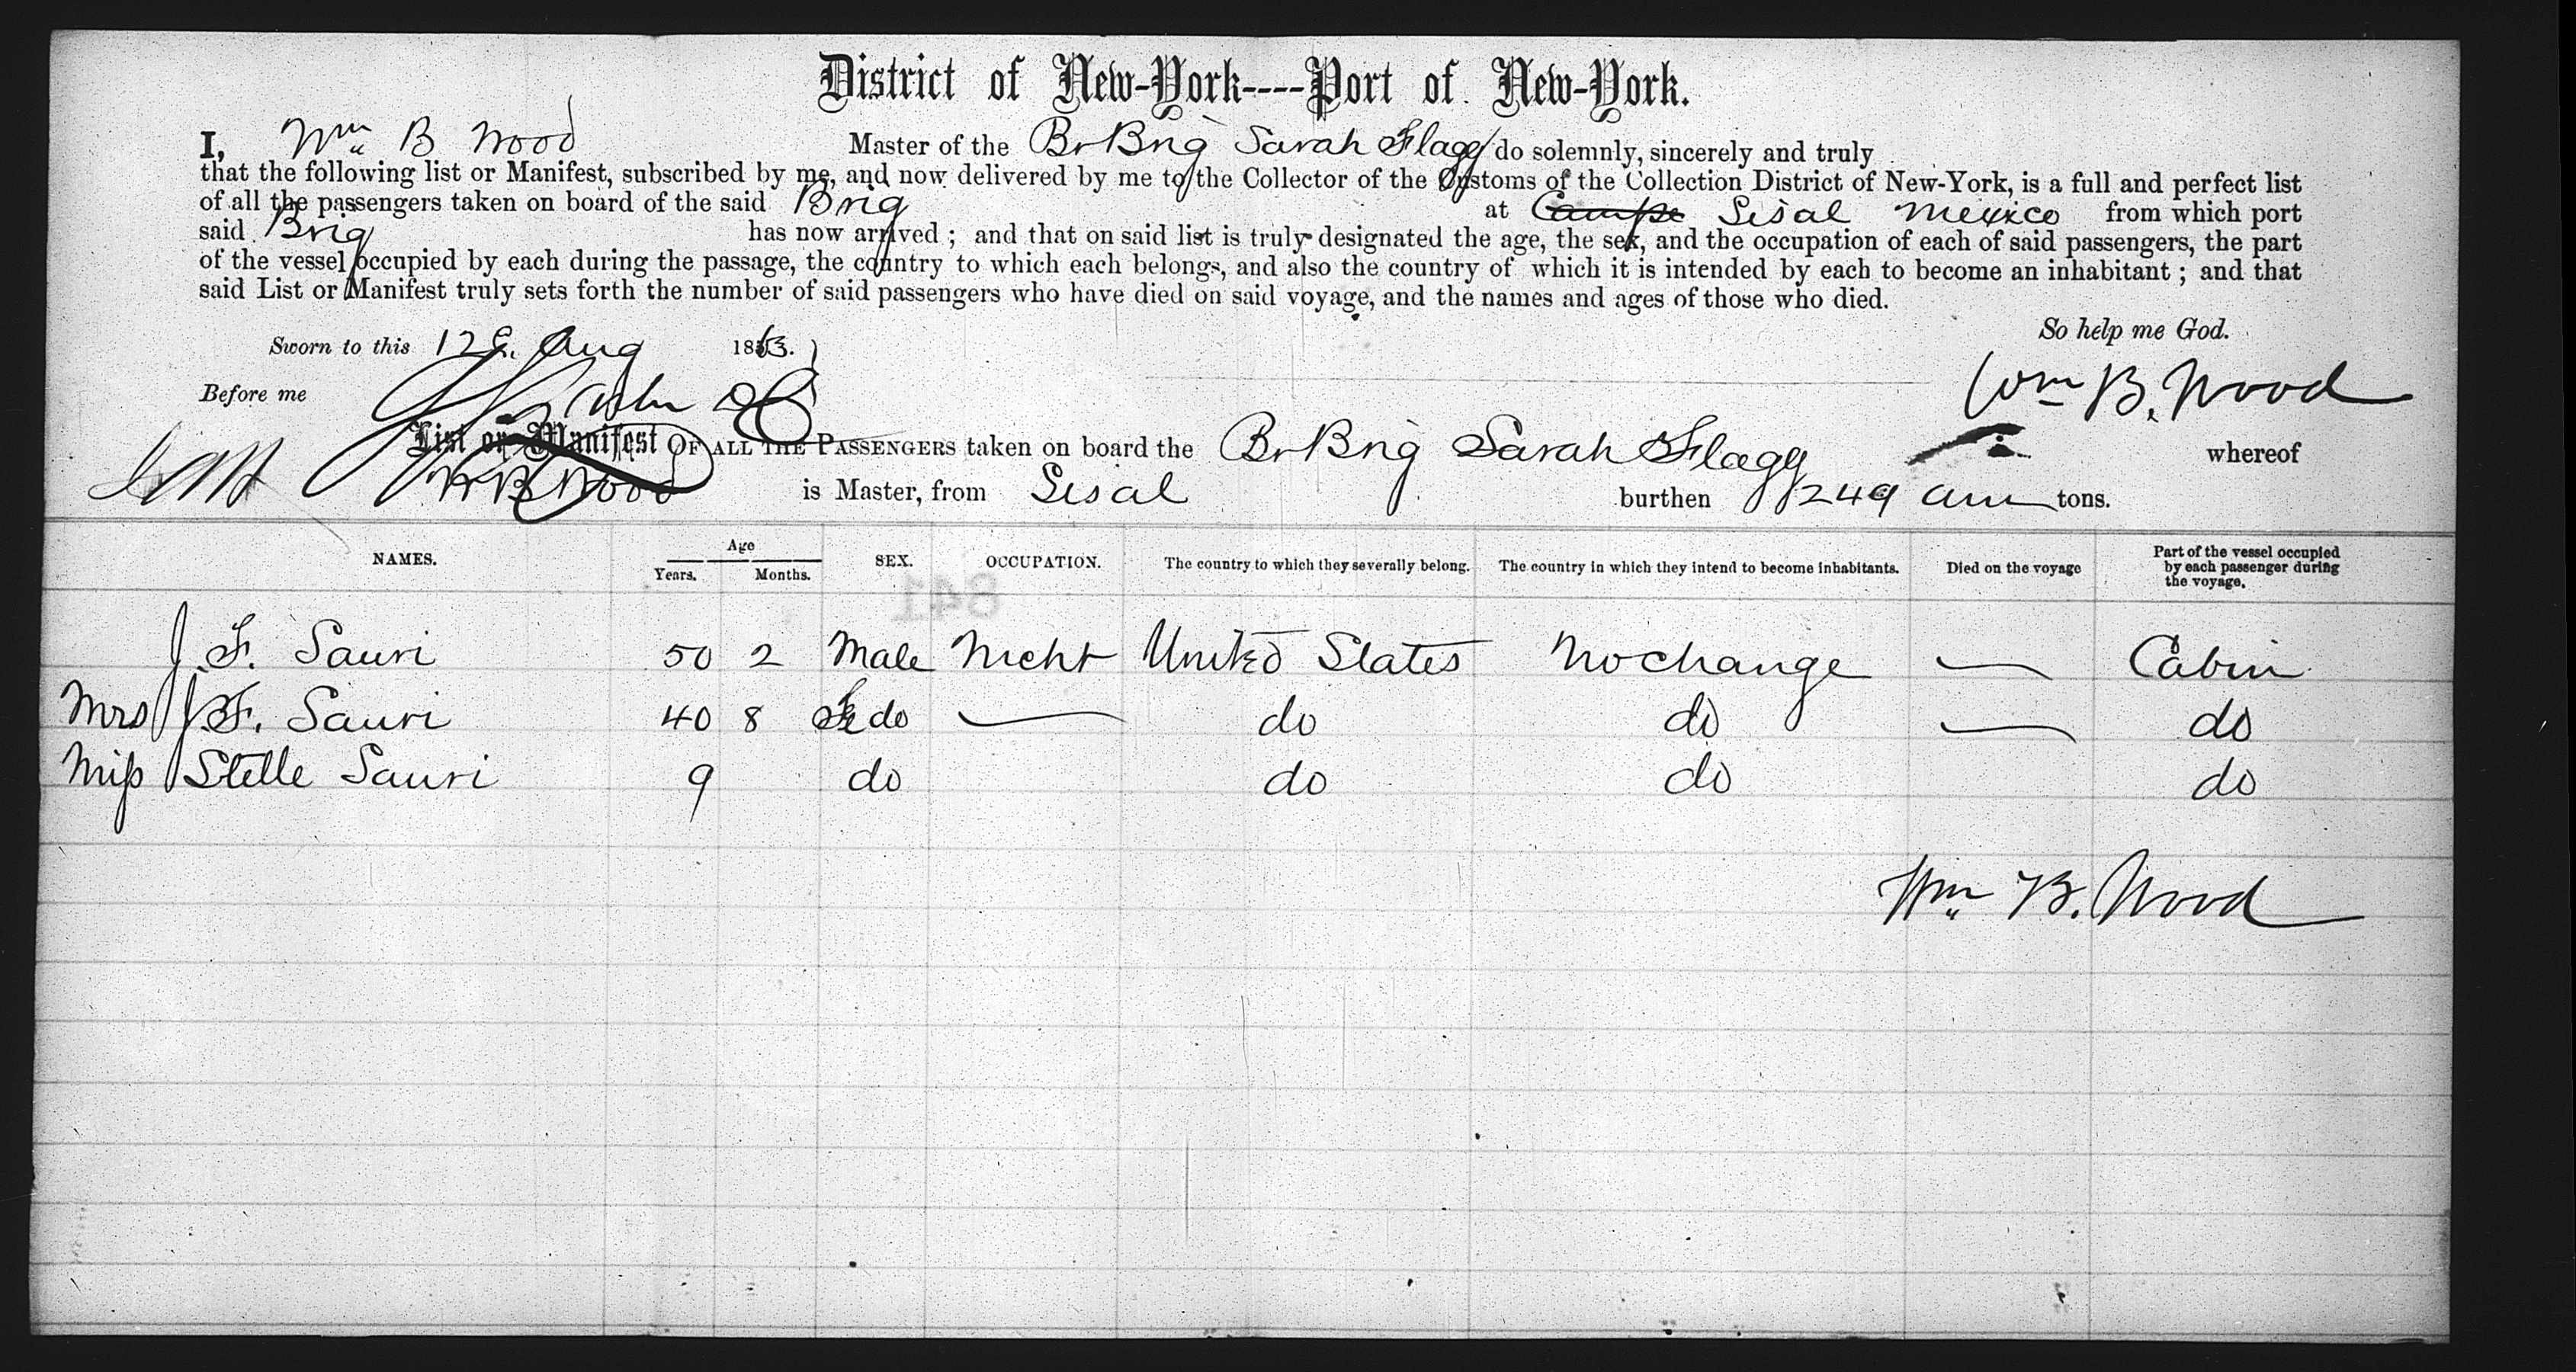 District of New-York----Port of New-York.
I, Wm B Wood Master of the Br Brig Sarah Flagg do solemnly, sincerely and truly
that the following list or Manifest, subscribed by me, and now delivered by me to the Collector of the Customs of the Collection District of New-York, is a full and perfect list
of all the passengers taken on board of the said Brig at Campe Sisal Mexico from which port
said Brig has now arrived ; and that on said list is truly designated the age, the sex, and the occupation of each of said passengers, the part
of the vessel occupied by each during the passage, the country to which each belongs, and also the country of which it is intended by each to become an inhabitant ; and that
said List or Manifest truly sets forth the number of said passengers who have died on said voyage, and the names and ages of those who died.
So help me God.
Sworn to this 12 Aug 1863.
Before me
Wm B. Wood
List or Manifest OF ALL THE PASSENGERS taken on board the Br Brig Sarah Flagg whereof
W B Wood is Master, from Sisal burthen 249 tons.
NAMES. Age Years. Months. SEX. OCCUPATION. The country to which they severally belong. The country in which they intend to become inhabitants. Died on the voyage Part of the vessel occupied by each passenger during the voyage.
841
J. F. Sauri 50 2 Male Mcht United States No change — Cabin
Mrs J. F. Sauri 40 8 Fe do — do do — do
Miss Stelle Sauri 9 do do do do
Wm B. Wood